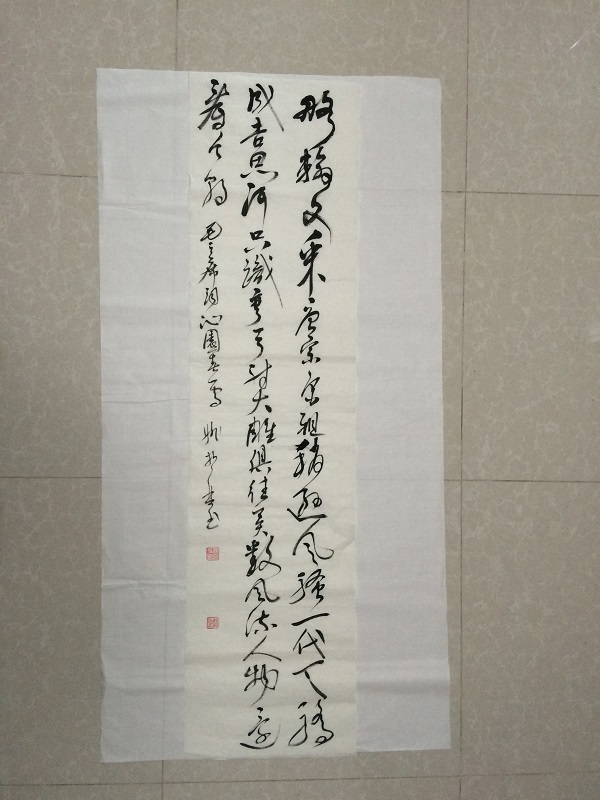 略輸文采唐宗宋祖稍遜风骚一代天骄
成吉思汗只識弯弓射大雕俱往矣數风流人物還
看今朝 毛主席词沁園春雪 书